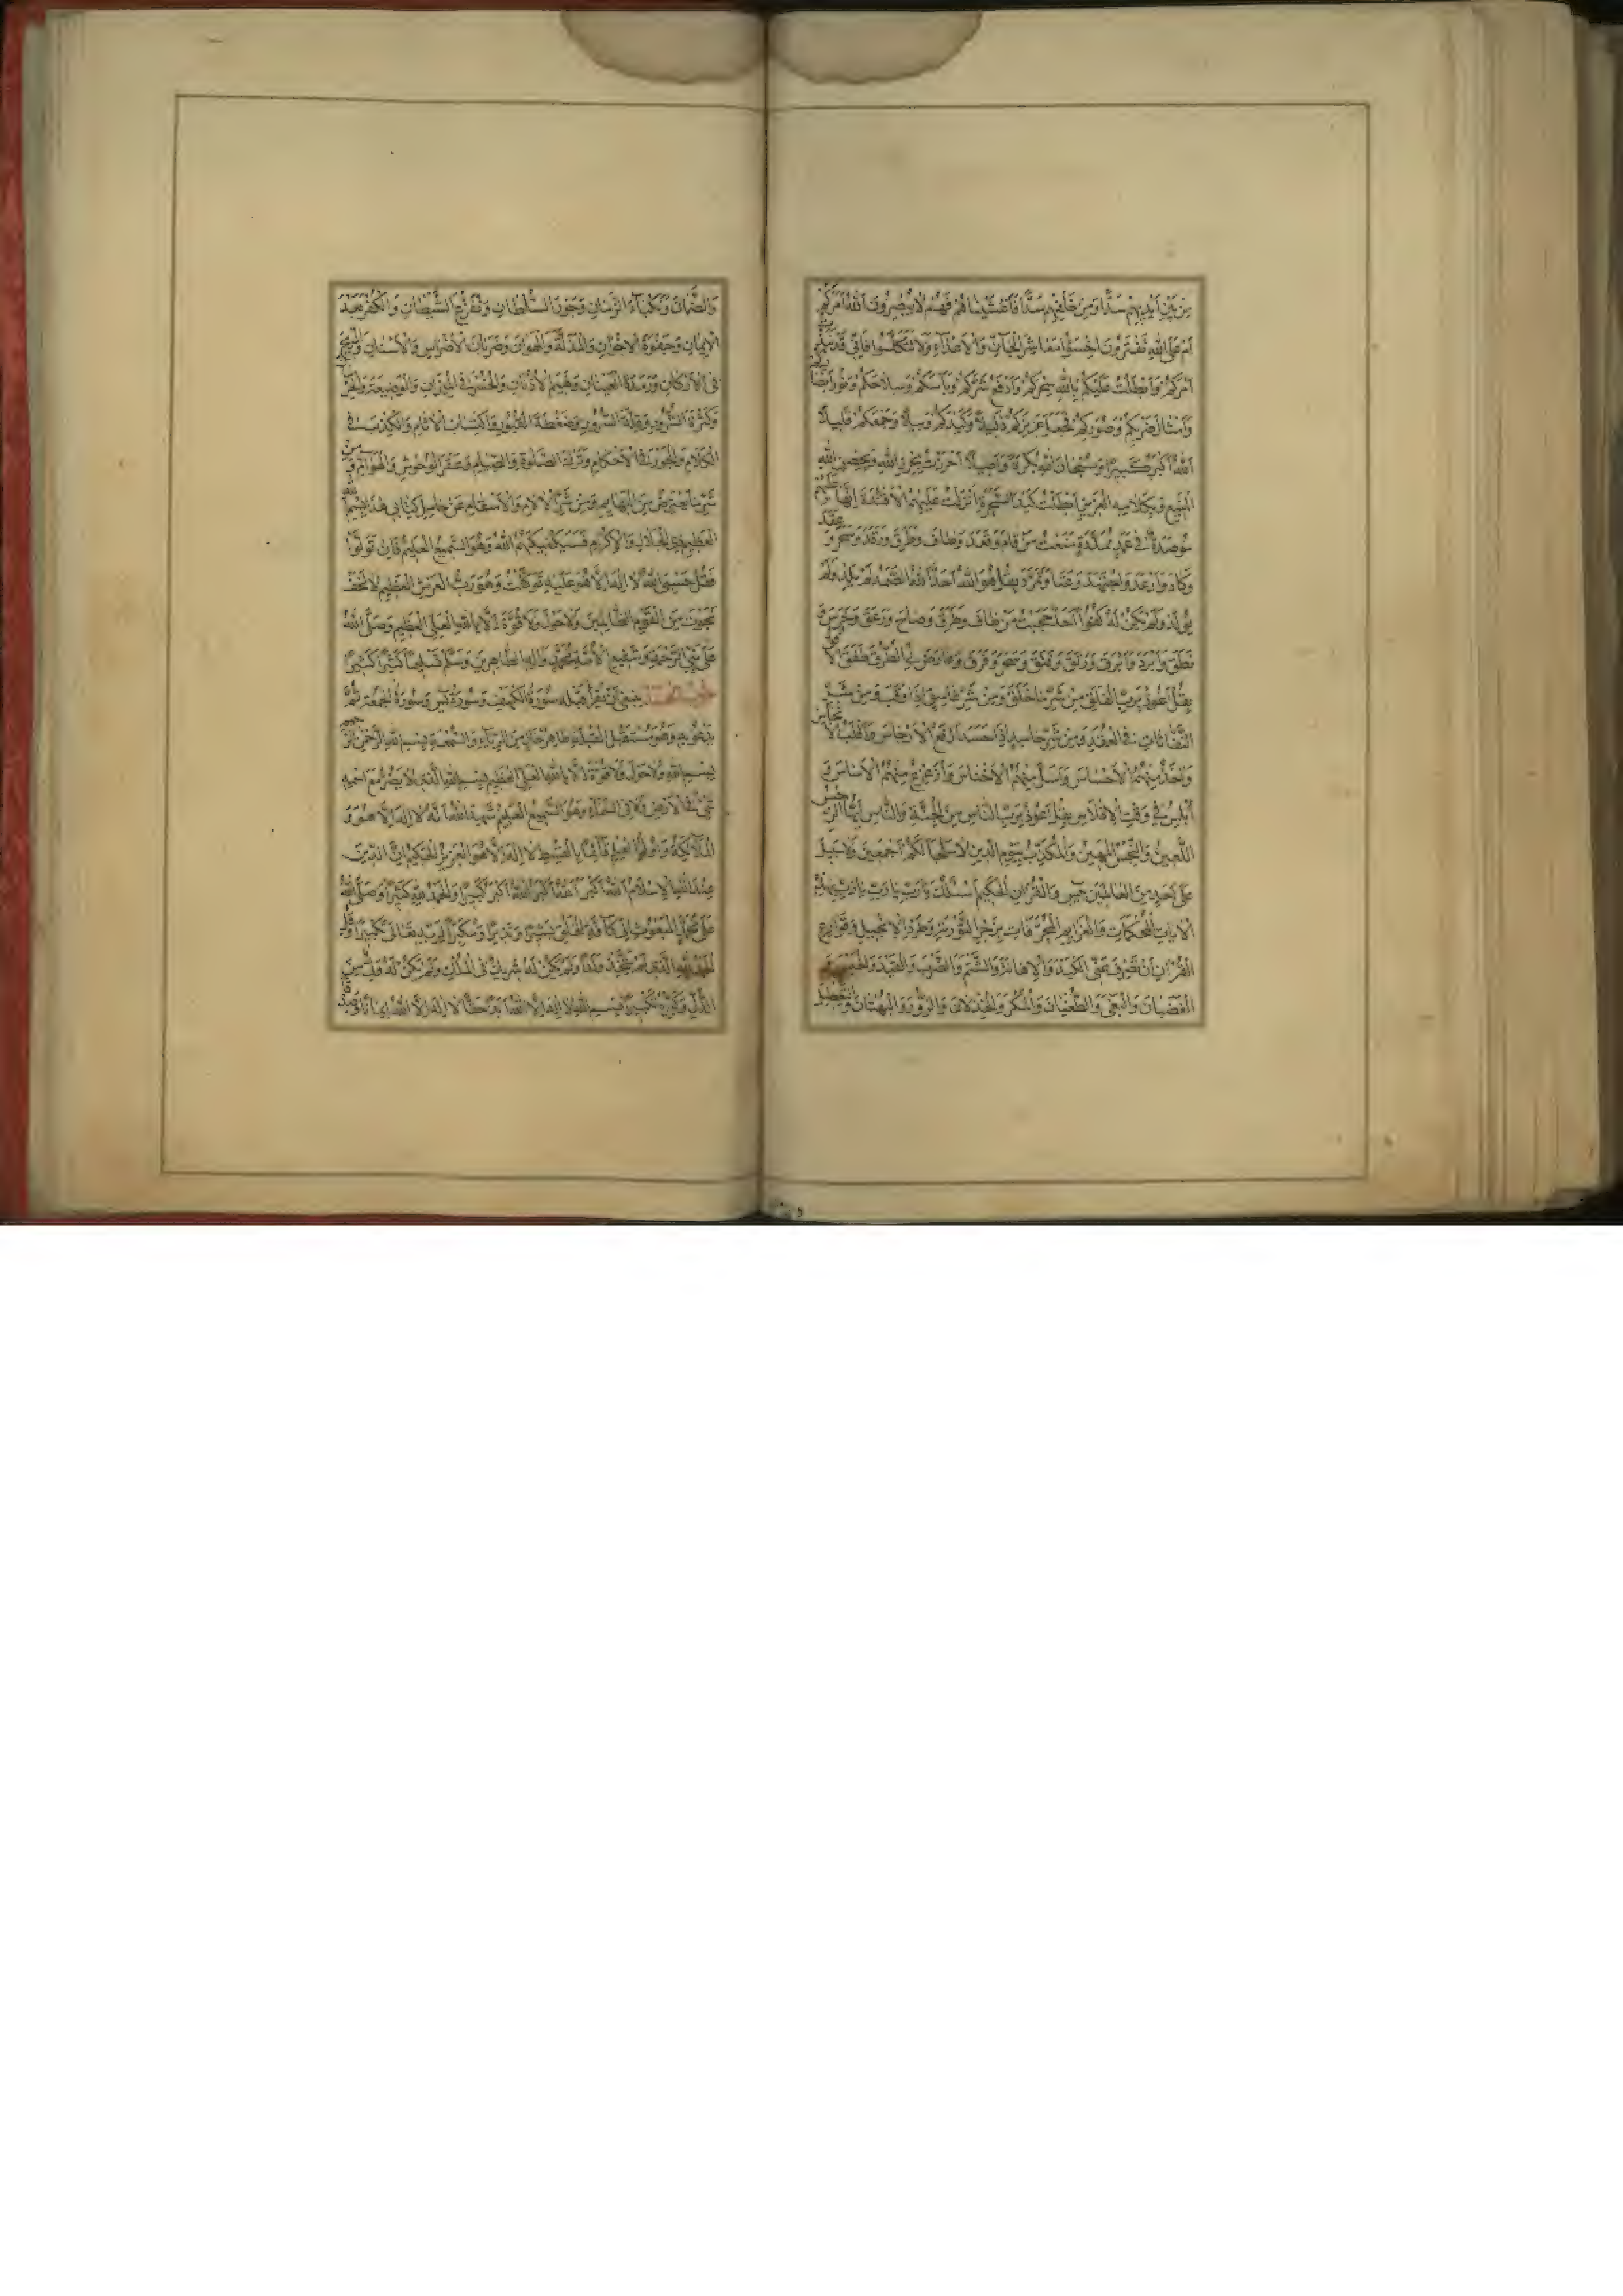 مِن بَيْنِ أَيْدِيهِمْ سَدًّا وَمِنْ خَلْفِهِمْ سَدًّا فَأَغْشَيْنَاهُمْ فَهُمْ لَا يُبْصِرُونَ آللَّهُ أَمَرَكُمْ
أَمْ عَلَى اللَّهِ تَفْتَرُونَ اخْسَؤُا مَعَاشِرَ الْجَانِّ وَالْأَعْدَاءِ وَلَا تَتَكَلَّمُوا فَإِنِّي قَدْ
أَمْرَكُمْ وَأَبْطَلْتُ عَلَيْكُمْ بِاللَّهِ سِحْرَكُمْ وَأَدْفَعُ شَرَّكُمْ وَبَأْسَكُمْ وَسِلَاحَكُمْ
وَأَمْثَالَ ضَرْبِكُمْ وَصُوَرِكُمْ فَجَعَلَ عَزِيزَكُمْ ذَلِيلًا وَكَيْدَكُمْ وَبِيلًا وَجَمْعَكُمْ قَلِيلًا
اللَّهُ أَكْبَرُ كَبِيرًا وَسُبْحَانَ اللَّهِ بُكْرَةً وَأَصِيلًا بِحِرْزِ اللَّهِ
الْمَنِيعِ وَبِكَلَامِهِ أَبْطَلْتُ كَيْدَ السَّحَرَةِ عَلَيْهِمُ إِنَّهَا عَلَيْهِمْ
مُؤْصَدَةٌ فِي عَمَدٍ مُمَدَّدَةٍ مَنَعْتُ مَنْ قَامَ وَقَعَدَ وَطَافَ وَطَرَقَ وَرَقَدَ وَسَحَرَ وَعَقَدَ
وَكَادَ وَأَرْعَدَ وَاجْتَهَدَ وَعَتَا وَتَمَرَّدَ بِقُلْ هُوَ اللَّهُ أَحَدٌ اللَّهُ الصَّمَدُ لَمْ يَلِدْ وَلَمْ
يُولَدْ وَلَمْ يَكُنْ لَهُ كُفُوًا أَحَدٌ حَجَبْتُ مَنْ طَافَ وَطَرَقَ وَصَاحَ وَزَعَقَ
نَطَقَ وَأَبْرَدَ وَأَبْرَقَ وَفَلَقَ وَسَحَرَ وَفَرَّقَ
بِقُلْ أَعُوذُ بِرَبِّ الْفَلَقِ مِنْ شَرِّ مَا خَلَقَ وَمِنْ شَرِّ غَاسِقٍ إِذَا وَقَبَ وَمِنْ شَرِّ
النَّفَّاثَاتِ فِي الْعُقَدِ وَمِنْ شَرِّ حَاسِدٍ إِذَا حَسَدَ الْأَرْجَاسَ
مِنْهُمُ الْأَحْسَاسَ مِنْهُمُ
إِبْلِيسَ فِي وَقْتِ الْإِفْلَاسِ بِقُلْ أَعُوذُ بِرَبِّ النَّاسِ مِنَ الْجِنَّةِ وَالنَّاسِ أَيُّهَا الرِّجْسُ
اللَّعِينُ وَالنَّجِسُ الْمَهِينُ وَالْمُكَذِّبُ بِيَوْمِ الدِّينِ لَا لَكُمْ أَجْمَعِينَ وَلَا سَبِيلَ
عَلَى أَحَدٍ مِنَ الْعَالَمِينَ يس وَالْقُرْآنِ الْحَكِيمِ أَسْئَلُكَ يَا رَبِّ يَا رَبِّ يَا رَبِّ بِهَذِهِ
الْآيَاتِ الْمُحْكَمَاتِ وَالْعَزَائِمِ الْمُحْرِقَاتِ وَقَوَارِعِ
الْقُرْآنِ أَنْ تَصْرِفَ عَنِّي الْكَيْدَ وَالْإِهَانَةَ وَالشَّتْمَ وَالضَّرْبَ وَالْقَيْدَ
الْغَضْبَانَ وَالْبَغْيَ وَالطُّغْيَانَ وَالْمَكْرَ وَالْخِذْلَانَ وَالزُّورَ وَالْبُهْتَانَ
الزَّمَانِ وَجَوْرَ السُّلْطَانِ الشَّيْطَانِ وَالْكُفْرَ بَعْدَ
الْإِيمَانِ وَجَفْوَةَ الْإِخْوَانِ وَالْمَذَلَّةَ وَالْهَوَانَ وَضَرَبَانَ الْأَضْرَاسِ وَالْأَسْنَانِ
فِي الْأَرْكَانِ وَرَمْدَةَ الْعَيْنَانِ الْأُذُنَانِ فِي الْمِيزَانِ
وَكَثْرَةَ الشُّرُورِ وَقِلَّةَ السُّرُورِ وَضَغْطَةَ الْقُبُورِ وَاكْتِسَابَ الْآثَامِ وَالْكَذِبَ فِي
الْكَلَامِ وَالْجَوْرَ فِي الْأَحْكَامِ وَتَرْكَ الصَّلَوةِ وَالصِّيَامِ وَعَقْرَ الْوُحُوشِ وَالْهَوَامِّ وَمِنْ
شَرِّ مَا مِنَ وَمِنْ شَرِّ الْآلَامِ وَالْأَسْقَامِ عَنْ حَامِلِ كِتَابِي هَذَا بِسْمِ اللَّهِ
الْعَظِيمِ ذِي الْجَلَالِ وَالْإِكْرَامِ فَسَيَكْفِيكَهُمُ اللَّهُ وَهُوَ السَّمِيعُ الْعَلِيمُ فَإِنْ تَوَلَّوْا
فَقُلْ حَسْبِيَ اللَّهُ لَا إِلَهَ إِلَّا هُوَ عَلَيْهِ تَوَكَّلْتُ وَهُوَ رَبُّ الْعَرْشِ الْعَظِيمِ لَا تَخَفْ
نَجَوْتَ مِنَ الْقَوْمِ الظَّالِمِينَ وَلَا حَوْلَ وَلَا قُوَّةَ إِلَّا بِاللَّهِ الْعَلِيِّ الْعَظِيمِ وَصَلَّى اللَّهُ
عَلَى نَبِيِّ الرَّحْمَةِ وَشَفِيعِ الْأُمَّةِ مُحَمَّدٍ وَآلِهِ الطَّاهِرِينَ وَسَلَّمَ تَسْلِيمًا كَثِيرًا كَثِيرًا
يَنْبَغِي أَنْ تَقْرَأَ قَبْلَهُ سُورَةَ الْكَهْفِ وَسُورَةَ يس وَسُورَةَ الْجُمُعَةِ ثُمَّ
تَدْعُو بِهِ وَهُوَ مُسْتَقْبِلَ الْقِبْلَةِ طَاهِرٌ خَالٍ مِنَ الرِّيَاءِ وَالسُّمْعَةِ بِسْمِ اللَّهِ الرَّحْمَنِ الرَّحِيمِ
بِسْمِ اللَّهِ وَلَا حَوْلَ وَلَا قُوَّةَ إِلَّا بِاللَّهِ الْعَلِيِّ الْعَظِيمِ بِسْمِ اللَّهِ الَّذِي لَا يَضُرُّ مَعَ اسْمِهِ
شَيْءٌ فِي الْأَرْضِ وَلَا فِي السَّمَاءِ وَهُوَ السَّمِيعُ الْعَلِيمُ شَهِدَ اللَّهُ أَنَّهُ لَا إِلَهَ إِلَّا هُوَ وَ
الْمَلَائِكَةُ وَأُولُوا الْعِلْمِ قَائِمًا بِالْقِسْطِ لَا إِلَهَ إِلَّا هُوَ الْعَزِيزُ الْحَكِيمُ إِنَّ الدِّينَ
عِنْدَ اللَّهِ الْإِسْلَامُ اللَّهُ أَكْبَرُ اللَّهُ أَكْبَرُ اللَّهُ أَكْبَرُ كَبِيرًا وَالْحَمْدُ لِلَّهِ كَثِيرًا وَصَلَّى اللَّهُ
عَلَى مُحَمَّدٍ الْمَبْعُوثِ إِلَى كَافَّةِ الْخَلْقِ بَشِيرًا وَنَذِيرًا تَكْبِيرًا وَقُلِ
الْحَمْدُ لِلَّهِ الَّذِي لَمْ يَتَّخِذْ وَلَدًا وَلَمْ يَكُنْ لَهُ شَرِيكٌ فِي الْمُلْكِ وَلَمْ يَكُنْ لَهُ وَلِيٌّ مِنَ
الذُّلِّ وَكَبِّرْهُ تَكْبِيرًا بِسْمِ اللَّهِ لَا إِلَهَ إِلَّا اللَّهُ لَا إِلَهَ إِلَّا اللَّهُ إِيمَانًا